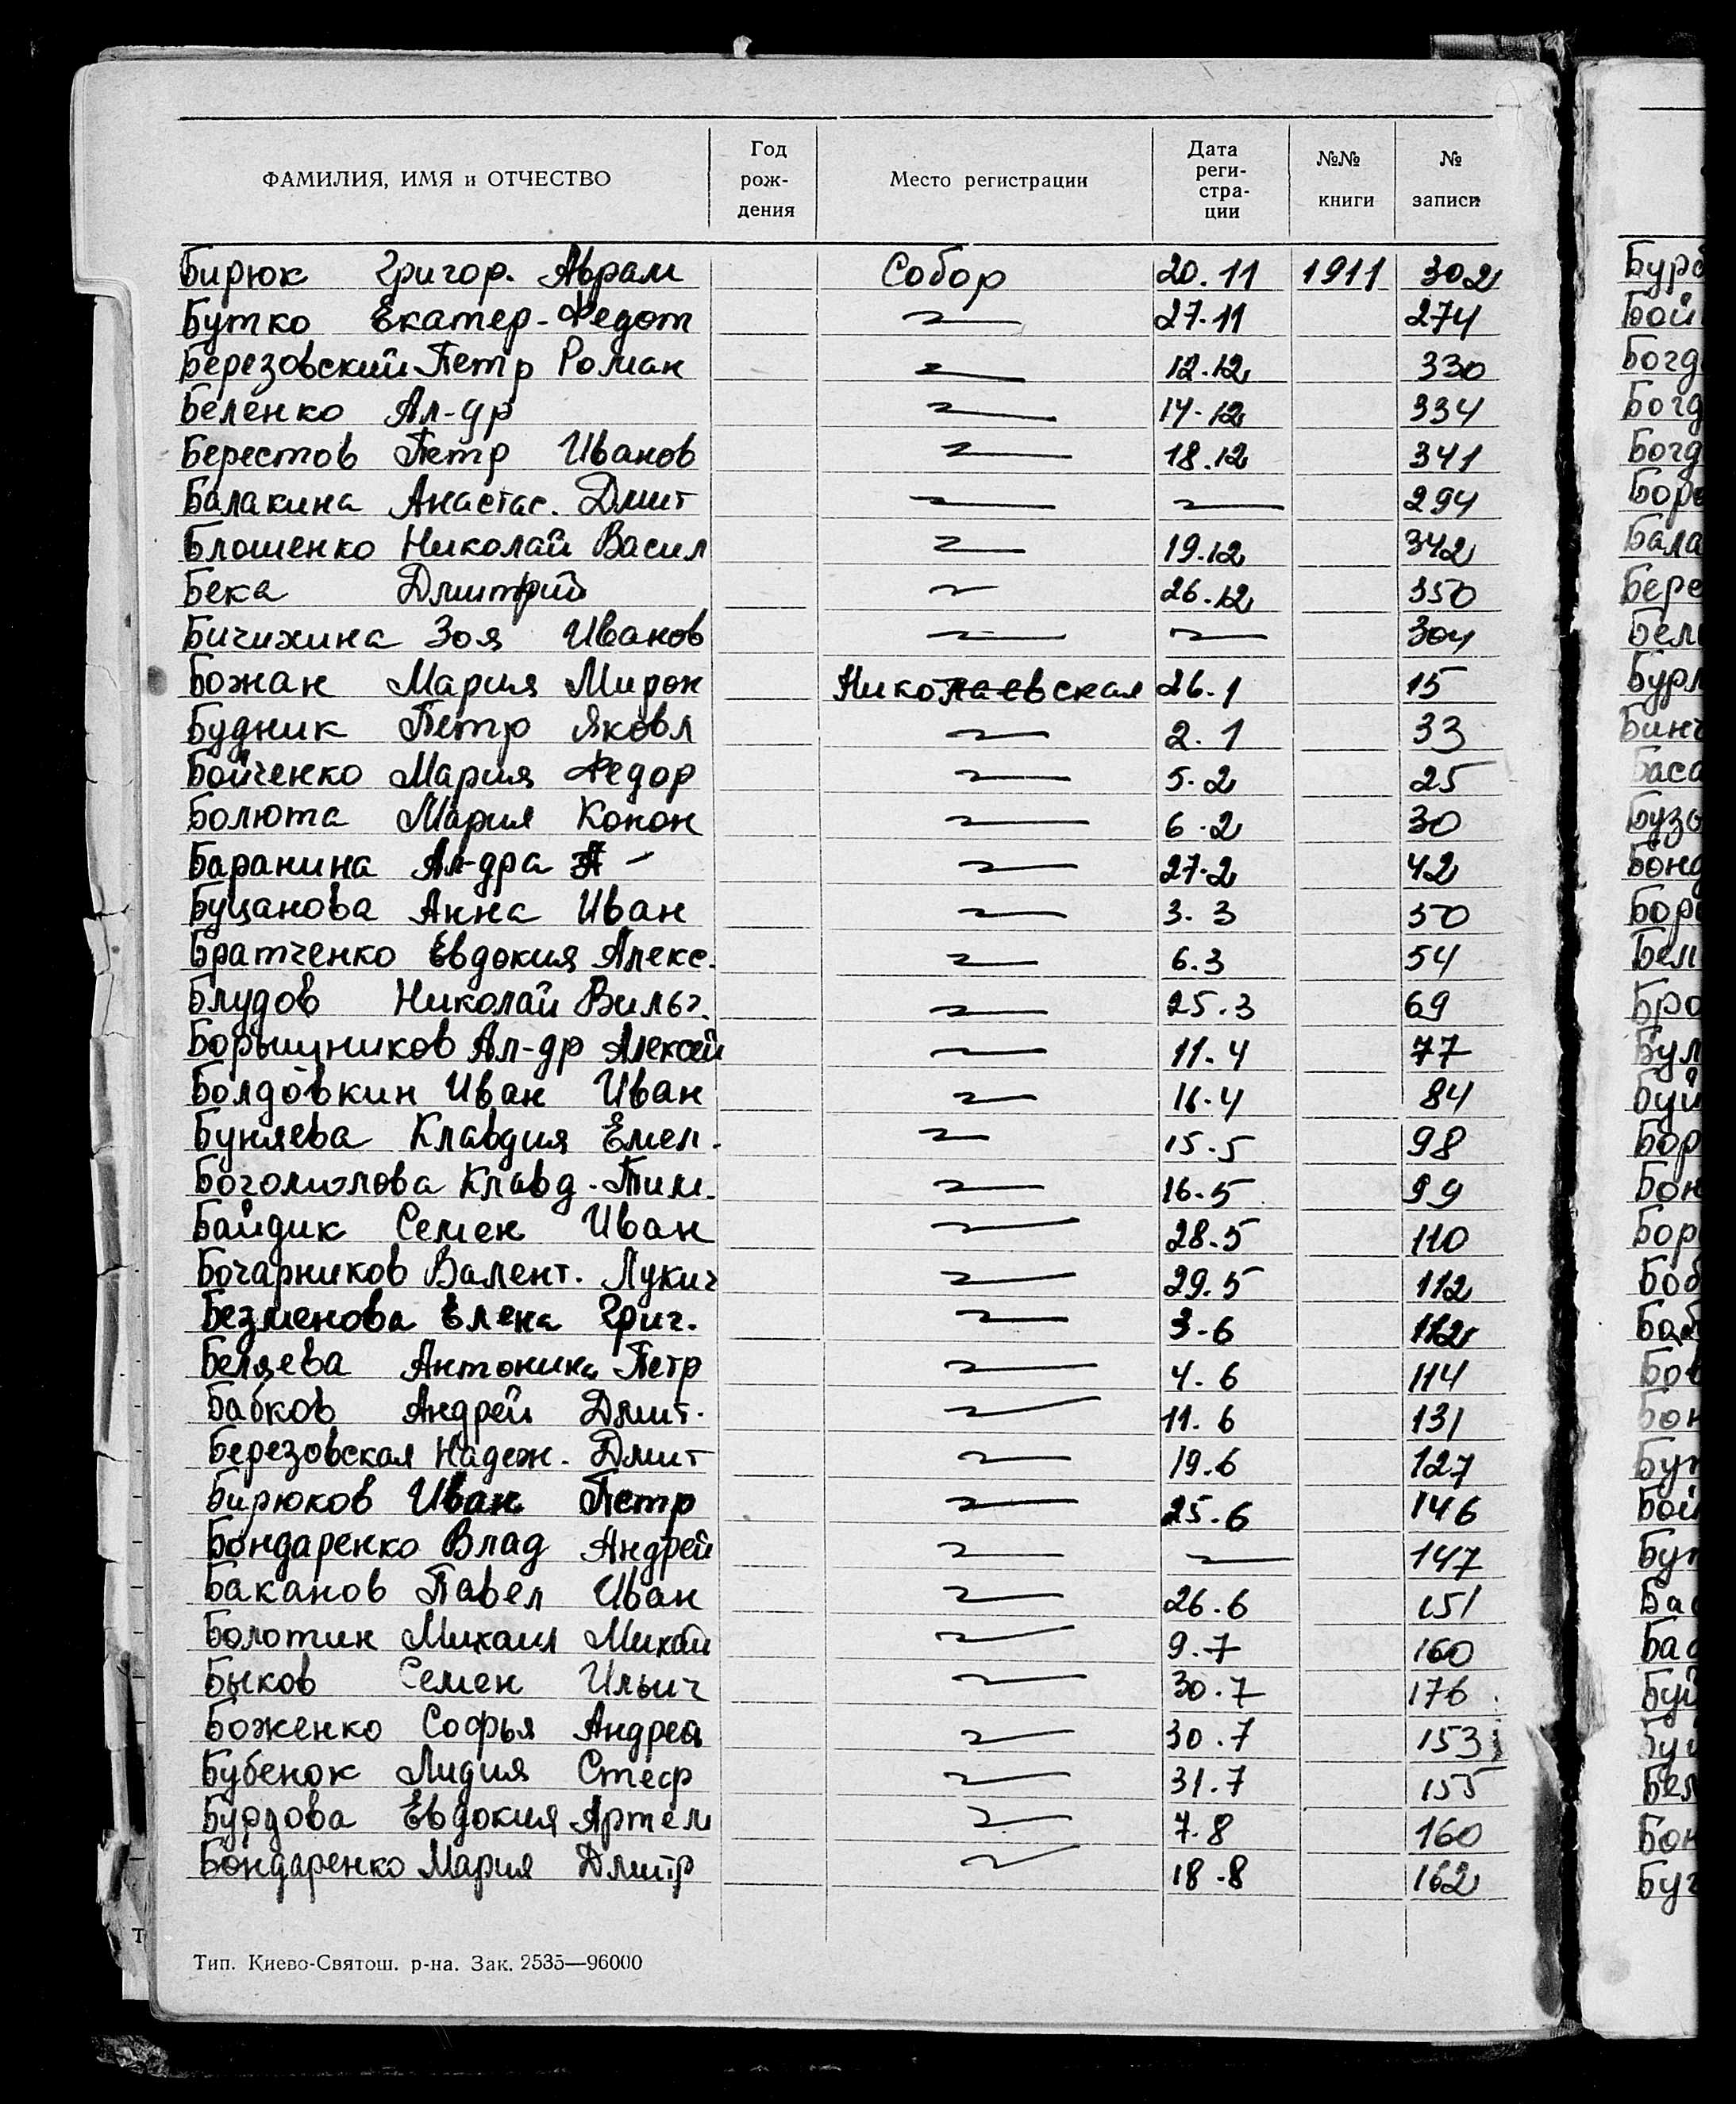 ФАМИЛИЯ, ИМЯ и ОТЧЕСТВО Год рож- дения Место регистрации Дата реги- стра- ции №№ книги № записи
Бирюк Григор. Аврам Собор 20.11 1911 302
Бутко Екатер-Федот 27.11 274
Березовский Петр Роман 12.12 330
Беленко Ал-др 14.12 334
Берестов Петр Иванов 18.12 341
Балакина Анастас. Дмит 294
Блошенко Николай Васил 19.12 342
Бека Дмитрий 26.12 350
Бичихина Зоя Иванов 304
Божан Мария Мирон Николаевская 26.1 15
Будник Петр Яковл 2.1 33
Бойченко Мария Федор 5.2 25
Болюта Мария Конон 6.2 30
Баранина Ал-дра А - 27.2 42
Буцанова Анна Иван 3.3 50
Братченко Евдокия Алекс. 6.3 54
Блудов Николай Вильг. 25.3 69
Борышников Ал-др Алексей 11.4 77
Болдовкин Иван Иван 16.4 84
Буняева Клавдия Емел. 15.5 98
Богомолова Клавд. Тим. 16.5 99
Байдик Семен Иван 28.5 110
Бочарников Валент. Лукич 29.5 112
Безменова Елена Григ. 3.6 112
Беляева Антонина Петр 4.6 114
Бабков Андрей Дмит. 11.6 131
Березовская Надеж. Дмит 19.6 127
Бирюков Иван Петр 25.6 146
Бондаренко Влад Андрей 147
Баканов Павел Иван 26.6 151
Болотин Михаил Михай 9.7 160
Быков Семен Ильич 30.7 176
Боженко Софья Андрев 30.7 153
Бубенок Лидия Стеф 31.7 155
Бурдова Евдокия Артем 7.8 160
Бондаренко Мария Дмитр 18.8 162
Тип. Киево-Святош. р-на. Зак. 2535—96000